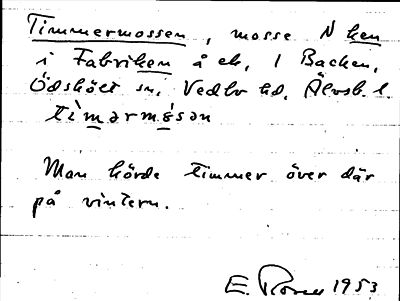 Timmermossen, mosse N ken
i Fabriken å ek, 1 Backen,
Ödskölt sn, Vedbo hd, Älvsb. l.
tìmərmósən
Man körde timmer över där
på vintern.
E. Rosen 1953